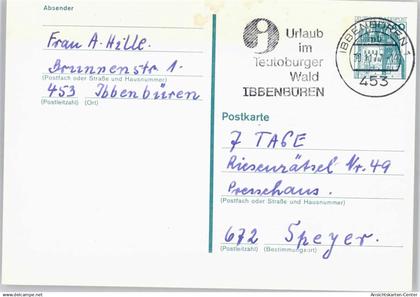 Absender
Frau A. Hille.
Brunnenstr 1.
(Postfach oder Straße und Hausnummer)
453 Ibbenbüren
(Postleitzahl) (Ort)
Urlaub
im
Teutoburger
Wald
IBBENBÜREN
IBBENBÜREN 1
453
Postkarte
7 TAGE
Riesenrätsel Nr. 49
Pressehaus.
(Postfach oder Straße und Hausnummer)
672 Speyer.
(Postleitzahl) (Bestimmungsort)
Ansichtskarten-Center